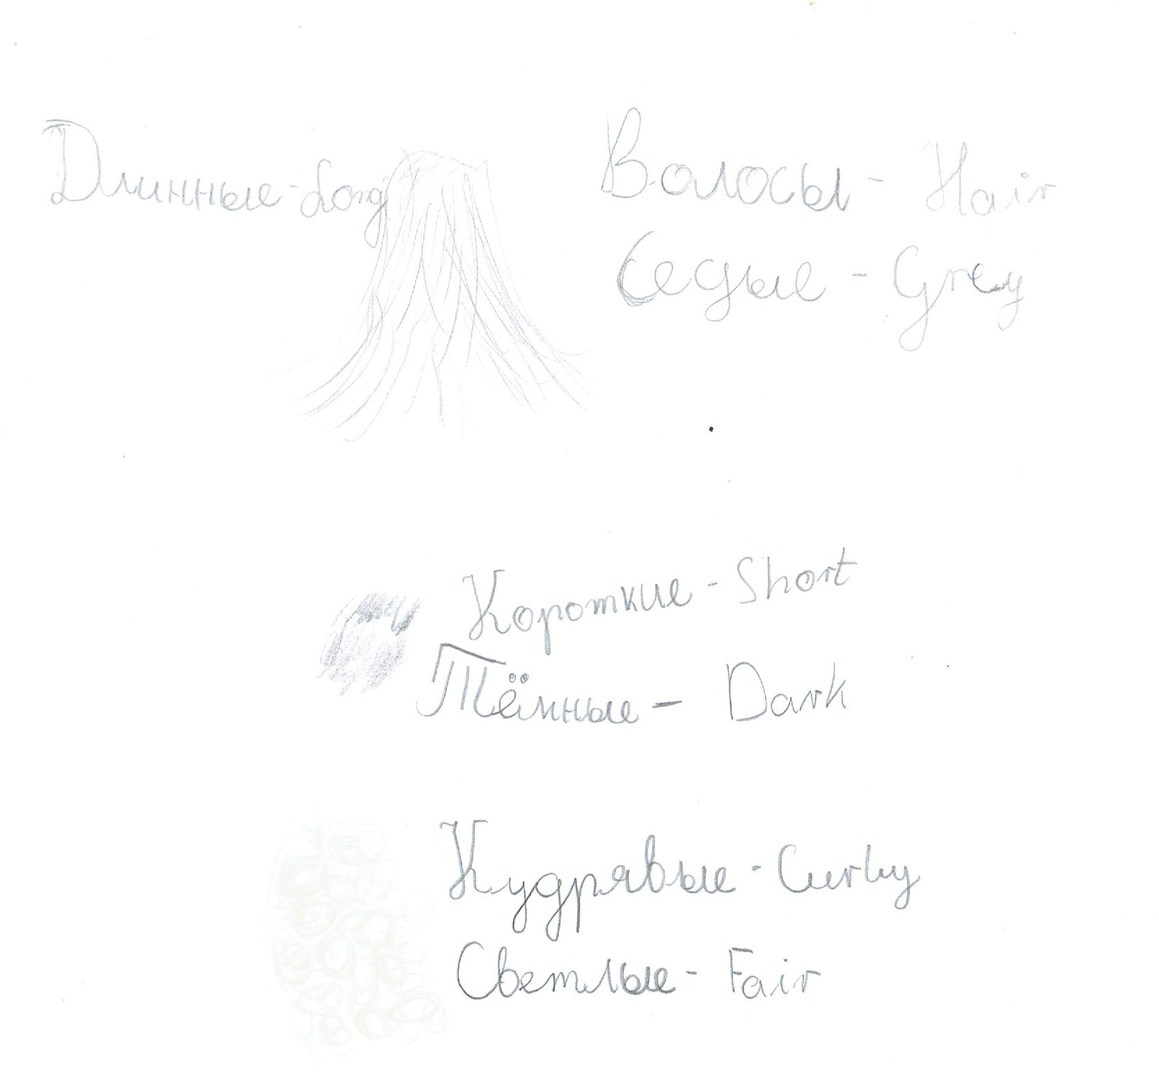 Длинные - Long
Волосы - Hair
Седые - Grey
Короткие - Short
Тёмные - Dark
Кудрявые - Curly
Светлые - Fair